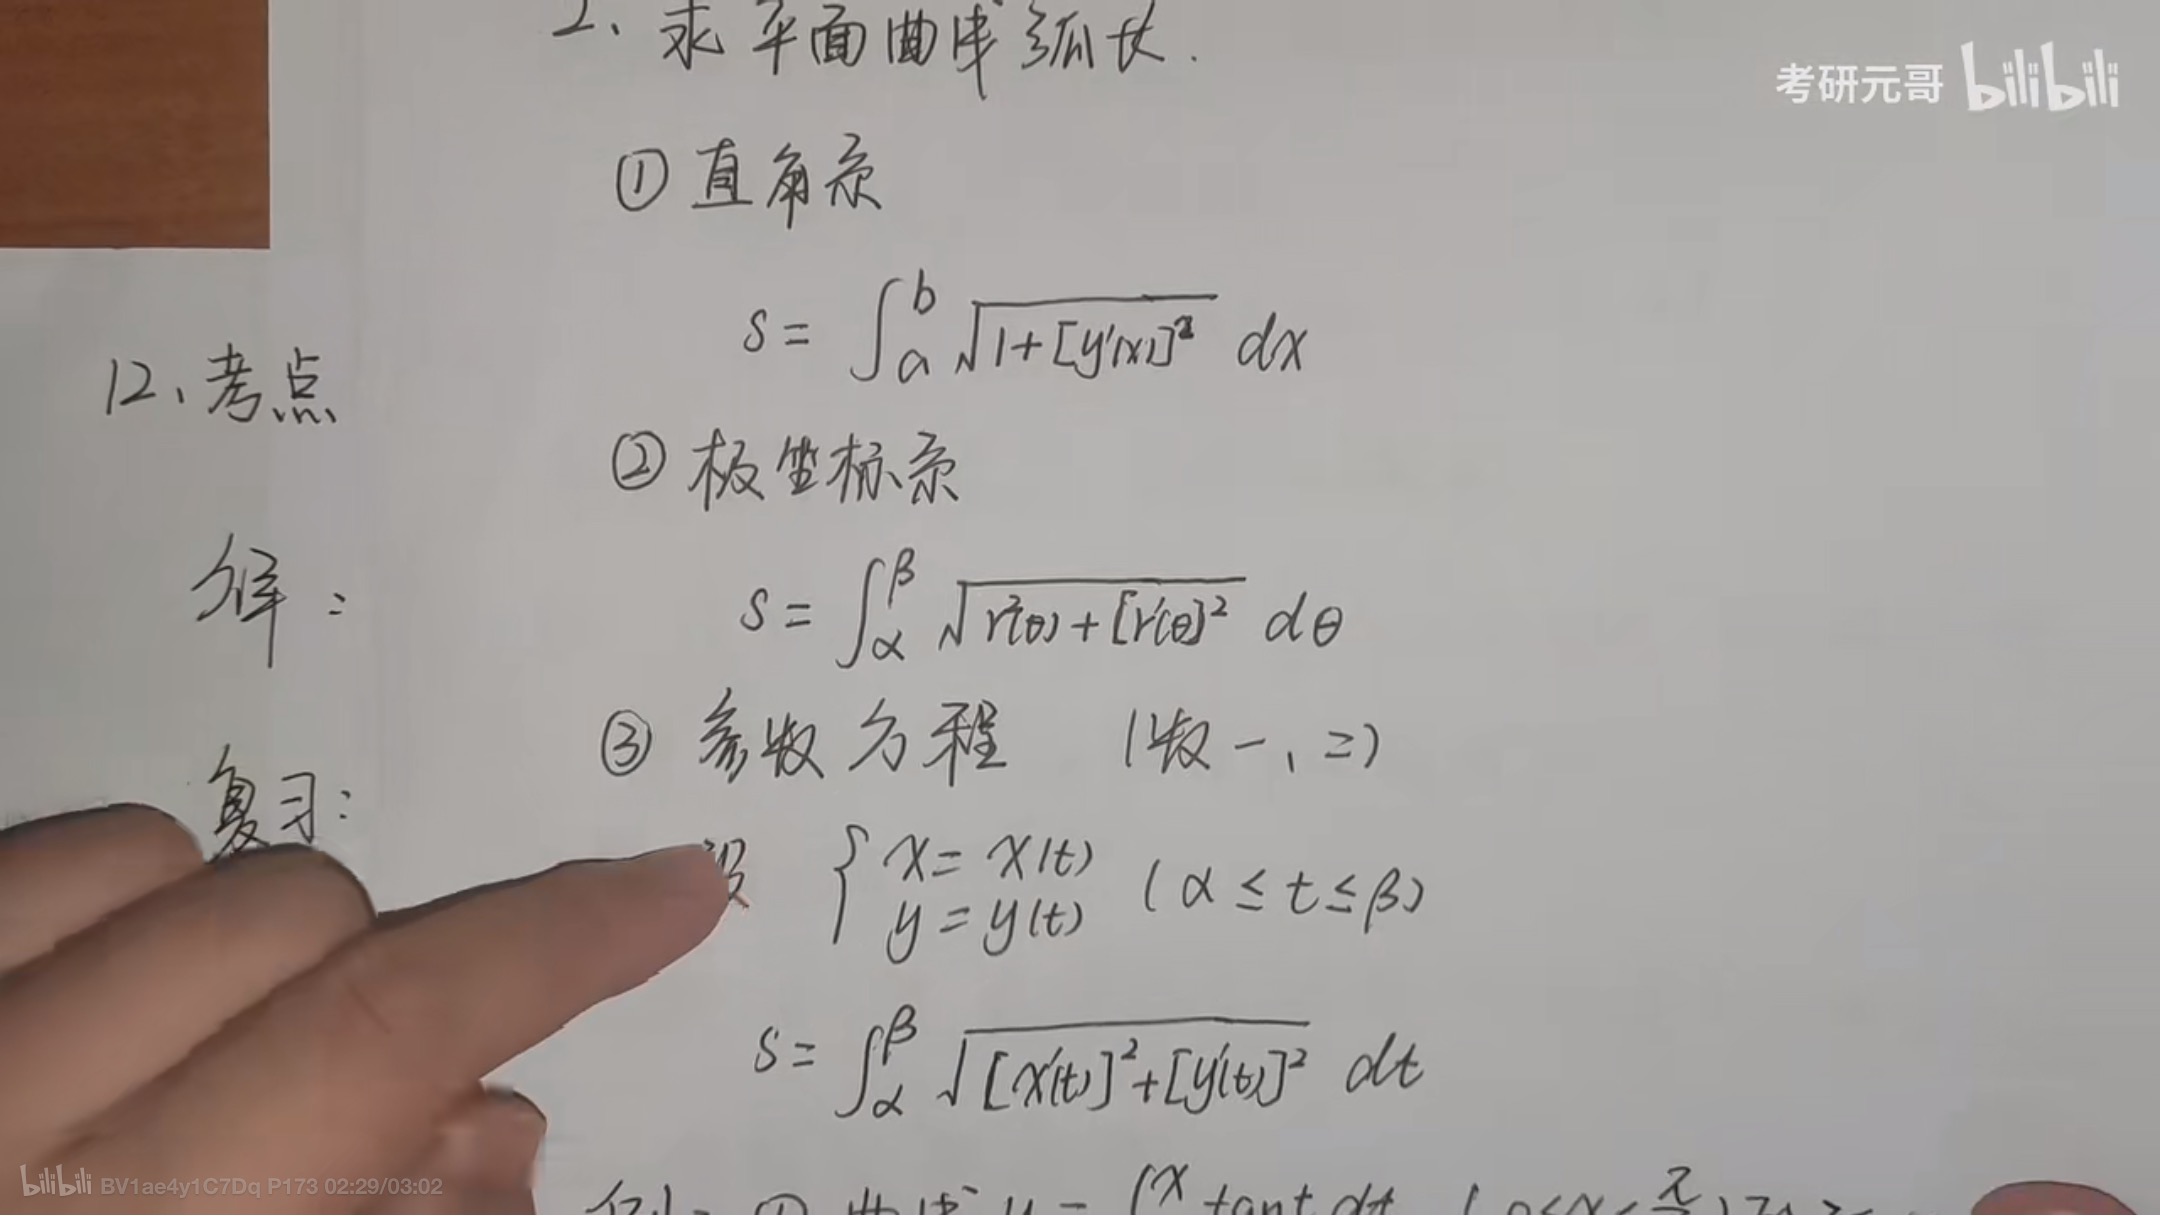 2、求平面曲线弧长.
考研元哥 bilibili
①直角系
s = ∫_a^b √(1+[y'(x)]²) dx
12、考点
②极坐标系
解:
s = ∫_α^β √(r²(θ)+[r'(θ)]²) dθ
③参数方程 (数一、二)
复习:
设 { x = x(t) y = y(t) (α ≤ t ≤ β)
s = ∫_α^β √([x'(t)]²+[y'(t)]²) dt
bilibili BV1ae4y1C7Dq P173 02:29/03:02
例: ① 曲线 y = ∫^x tant dt